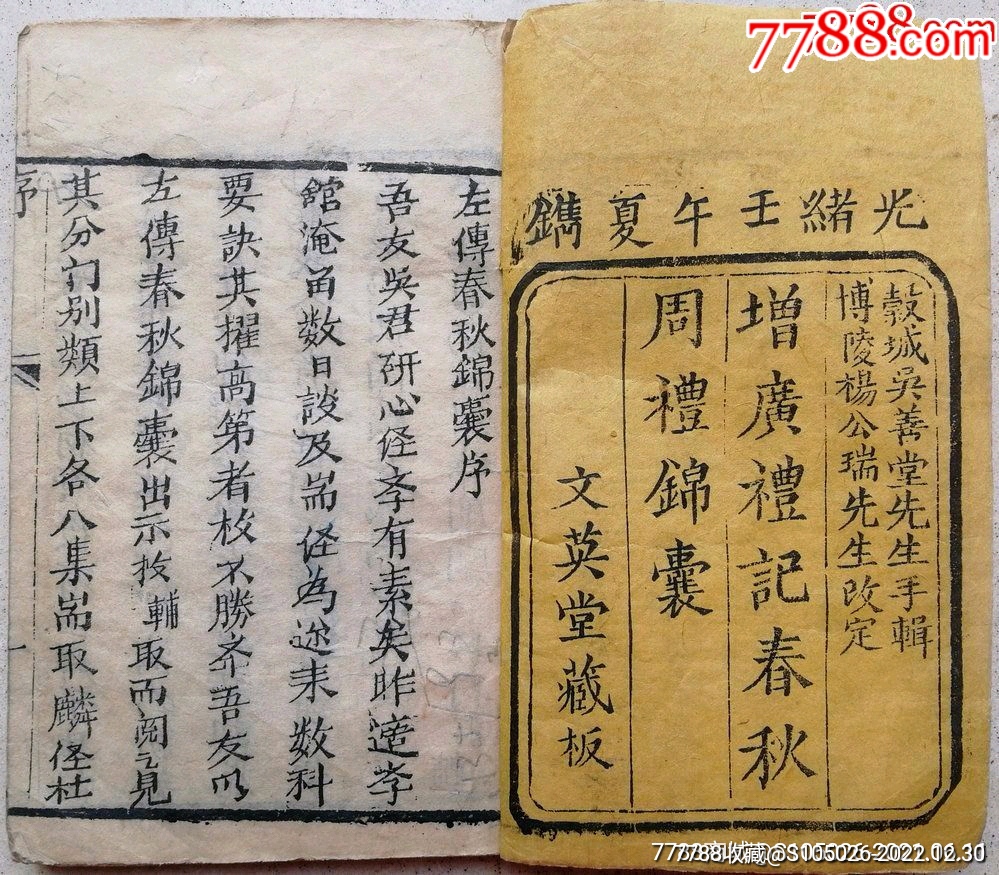 7788.com
光緒壬午夏鐫
穀城吳善堂先生手輯
博陵楊公瑞先生改定
增廣禮記春秋
周禮錦囊
文英堂藏板
左傳春秋錦囊序
吾友吳君研心径斈有素矣昨斈
舘淹畄数日談及耑径為迩耒数科
要訣其擢高第者枚不勝斉吾友以
左傳春秋錦囊出示扳輔取而閲之見
其分门别類上下各八集耑取麟径杜
序
一
7788收藏@S105026-2022.12.30